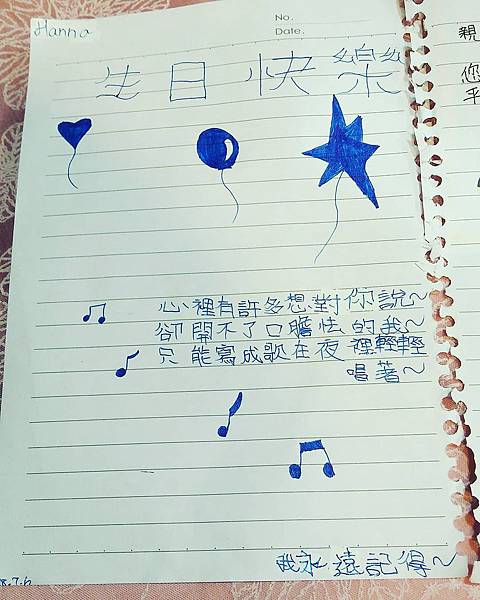 Hanna
No.
Date.
生日快樂
心裡有許多想對你說~
卻開不了口膽怯的我~
只能寫成歌在夜裡輕輕
唱著~
我永遠記得~
8.7.6
親
您
平